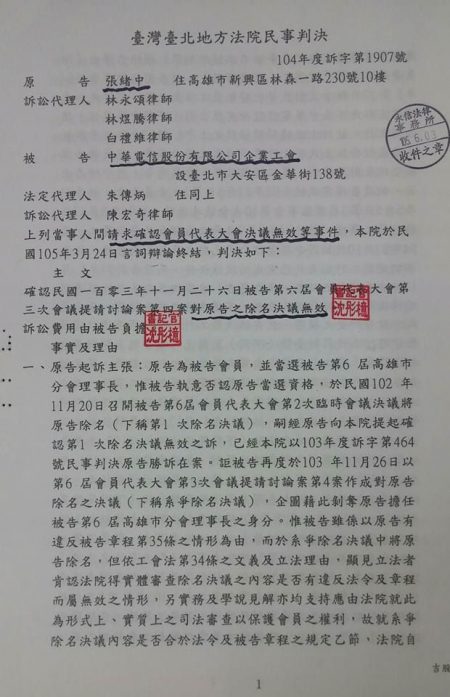 臺灣臺北地方法院民事判決
104年度訴字第1907號
原　　　告　張緒中　住高雄市新興區林森一路230號10樓
訴訟代理人　林永頌律師
林煜騰律師
白禮維律師
被　　　告　中華電信股份有限公司企業工會
設臺北市大安區金華街138號
法定代理人　朱傳炳　住同上
訴訟代理人　陳宏奇律師
上列當事人間請求確認會員代表大會決議無效等事件，本院於民
國105年3月24日言詞辯論終結，判決如下：
主　文
確認民國一百零三年十一月二十六日被告第六屆會員代表大會第
三次會議提請討論案第四案對原告之除名決議無效
訴訟費用由被告負擔
事實及理由
一、原告起訴主張：原告為被告會員，並當選被告第6 屆高雄市
分會理事長，惟被告執意否認原告當選資格，於民國102 年
11月20日召開被告第6屆會員代表大會第2次臨時會議決議將
原告除名（下稱第1 次除名決議），嗣經原告向本院提起確
認第1 次除名決議無效之訴，已經本院以103年度訴字第464
號民事判決原告勝訴在案。詎被告再度於103 年11月26日以
第6 屆會員代表大會第3次會議提請討論案第4案作成對原告
除名之決議（下稱系爭除名決議），企圖藉此剝奪原告擔任
被告第6 屆高雄市分會理事長之身分。惟被告雖係以原告有
違反被告章程第35條之情形為由，而於系爭除名決議中將原
告除名，但依工會法第34條之文義及立法理由，顯見立法者
肯認法院得實體審查除名決議之內容是否有違反法令及章程
而屬無效之情形，另實務及學說見解亦均支持應由法院就此
為形式上、實質上之司法審查以保護會員之權利，故就系爭
除名決議內容是否合於法令及被告章程之規定乙節，法院自
1
永信法律
事務所
105.6.03
收件之章
書記官
沈彤檍
書記官
沈彤檍